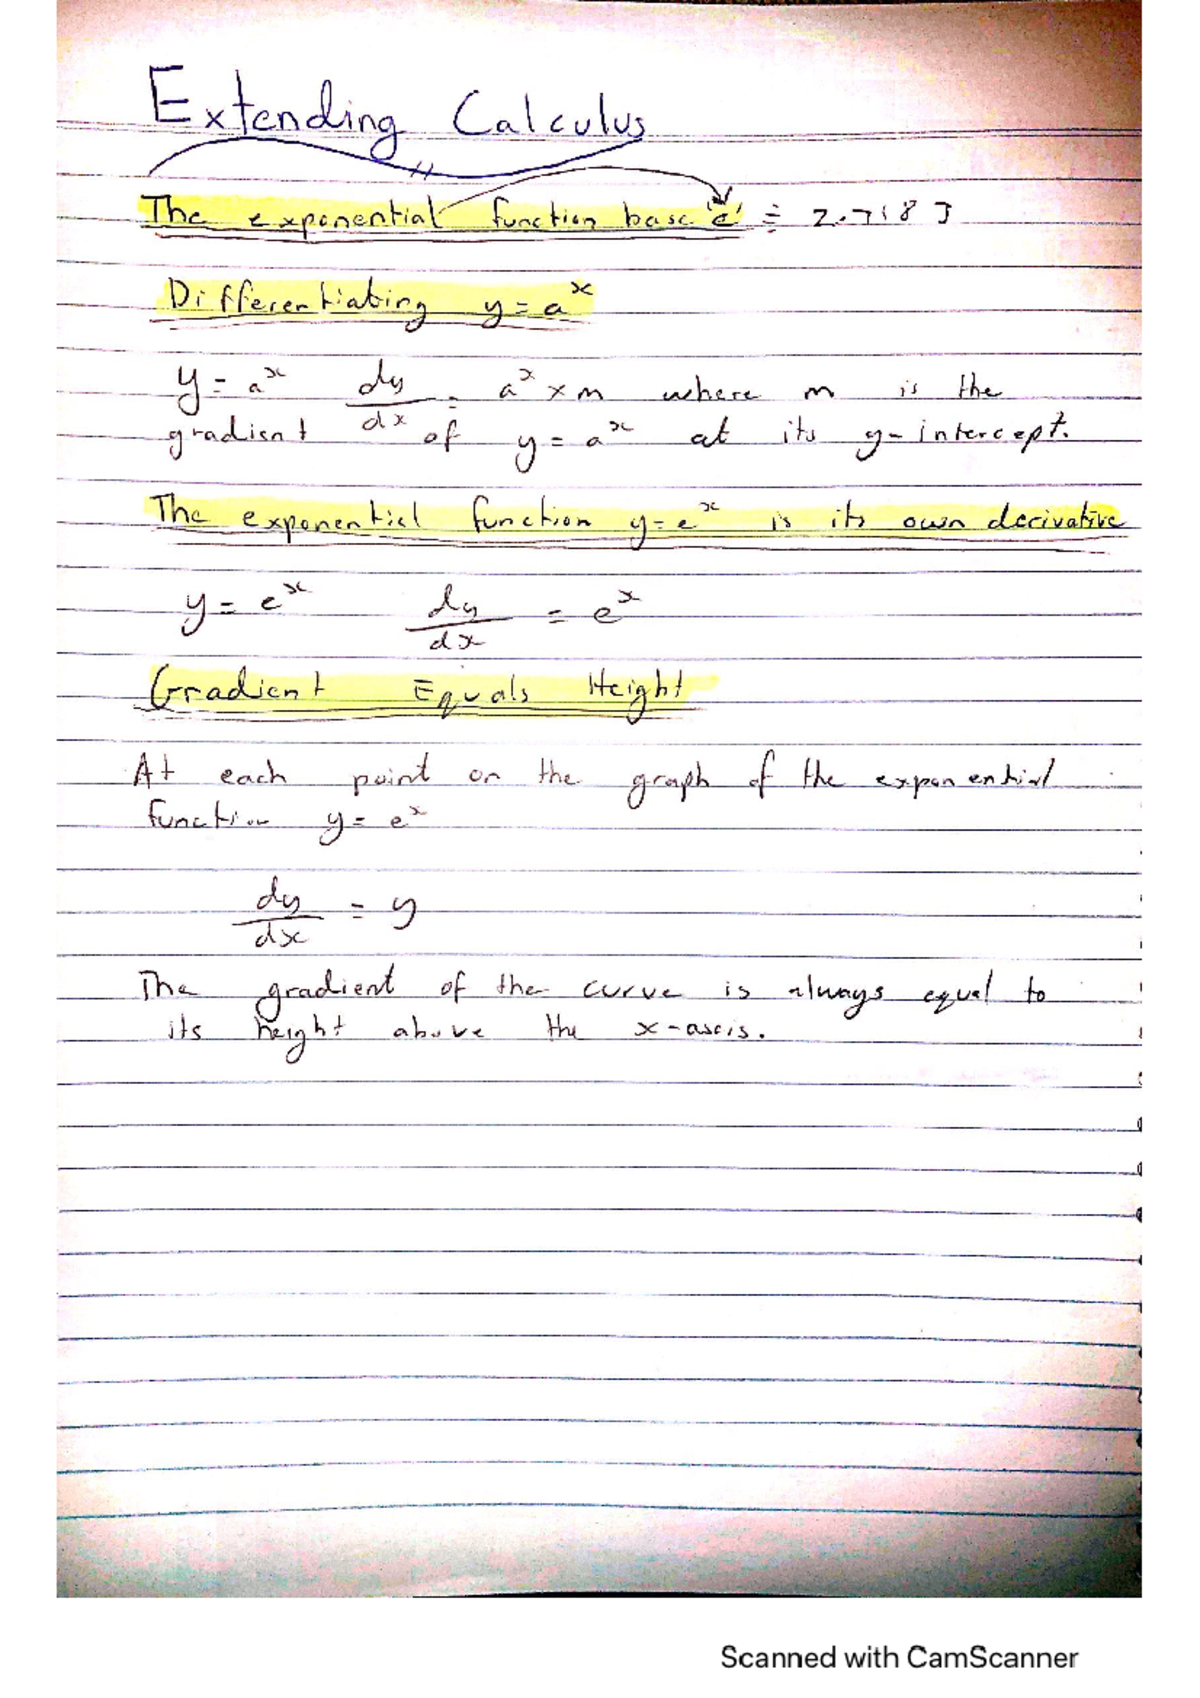 Extending Calculus
The exponential function base 'e' ≑ 2.7183
Differentiating y = aˣ
y = aˣ dy/dx = aˣ × m where m is the
gradient of y = aˣ at its y-intercept.
The exponential function y = eˣ is its own derivative
y = eˣ dy/dx = eˣ
Gradient Equals Height
At each point on the graph of the exponential
function y = eˣ
dy/dx = y
The gradient of the curve is always equal to
its height above the x-axis.
Scanned with CamScanner